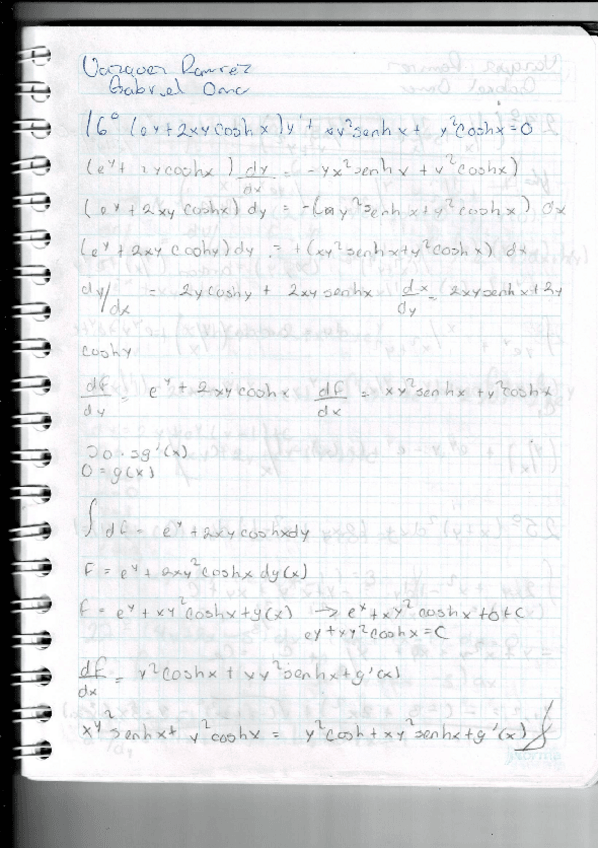 Vazquez Ramirez
Gabriel Omar
16° (ey + 2xy cosh x) y' + xy² senh x + y² cosh x = 0
(ey + 2xycoshx) dy/dx = -yx² senh x + y² coshx)
(ey + 2xy coshx) dy = -(xy² senh x + y² cosh x) dx
(ey + 2xy coshy) dy = +(xy² senhx + y² cosh x) dx
dy/dx = 2y coshy + 2xy senhx dx/dy = 2xy senhx + 2y
coshy
df/dy = ey + 2xy coshx df/dx = xy² senhx + y² coshx
0 = g'(x)
0 = g(x)
∫ df = ey + 2xy coshxdy
F = ey + 2xy² coshx dy(x)
f = ey + xy² coshx + g(x) → ex + xy² coshx + 0 + C
ey + xy² coshx = C
df/dx = y² coshx + xy² senhx + g'(x)
xy² senhx + y² coshx = y² cosh + xy² senhx + g'(x)
norma